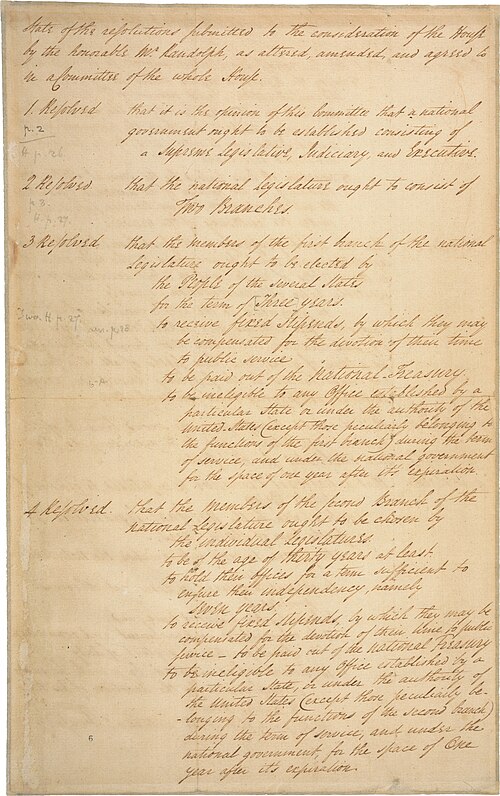 State of the resolutions submitted to the consideration of the House
by the honorable Mr. Randolph, as altered, amended, and agreed to
in a Committee of the whole House.
1. Resolved that it is the opinion of this Committee that a national
p. 2
government ought to be established consisting of
H p. 26
a Supreme Legislative, Judiciary, and Executive.
2 Resolved that the national Legislature ought to consist of
p. 3.
Two Branches.
H. p. 27.
3 Resolved that the members of the first branch of the national
Legislature ought to be elected by
the People of the several States
for the term of Three years.
Two. H. p. 27.
to receive fixed stipends, by which they may
be compensated for the devotion of their time
to public service
to be paid out of the National-Treasury.
to be ineligible to any Office established by a
particular State or under the authority of the
United States (except those peculiarly belonging to
the functions of the first branch) during the term
of service, and under the national government
for the space of one year after its expiration.
4 Resolved. that the Members of the second Branch of the
national Legislature ought to be chosen by
the individual Legislatures.
to be of the age of thirty years at least.
to hold their offices for a term sufficient to
ensure their independency, namely
seven years.
to receive fixed stipends, by which they may be
compensated for the devotion of their time to public
service - to be paid out of the national Treasury
to be ineligible to any Office established by a
particular State, or under the authority of
the United States (except those peculiarly be-
-longing to the functions of the second branch)
during the term of service, and under the
6
national government, for the space of One
year after its expiration.